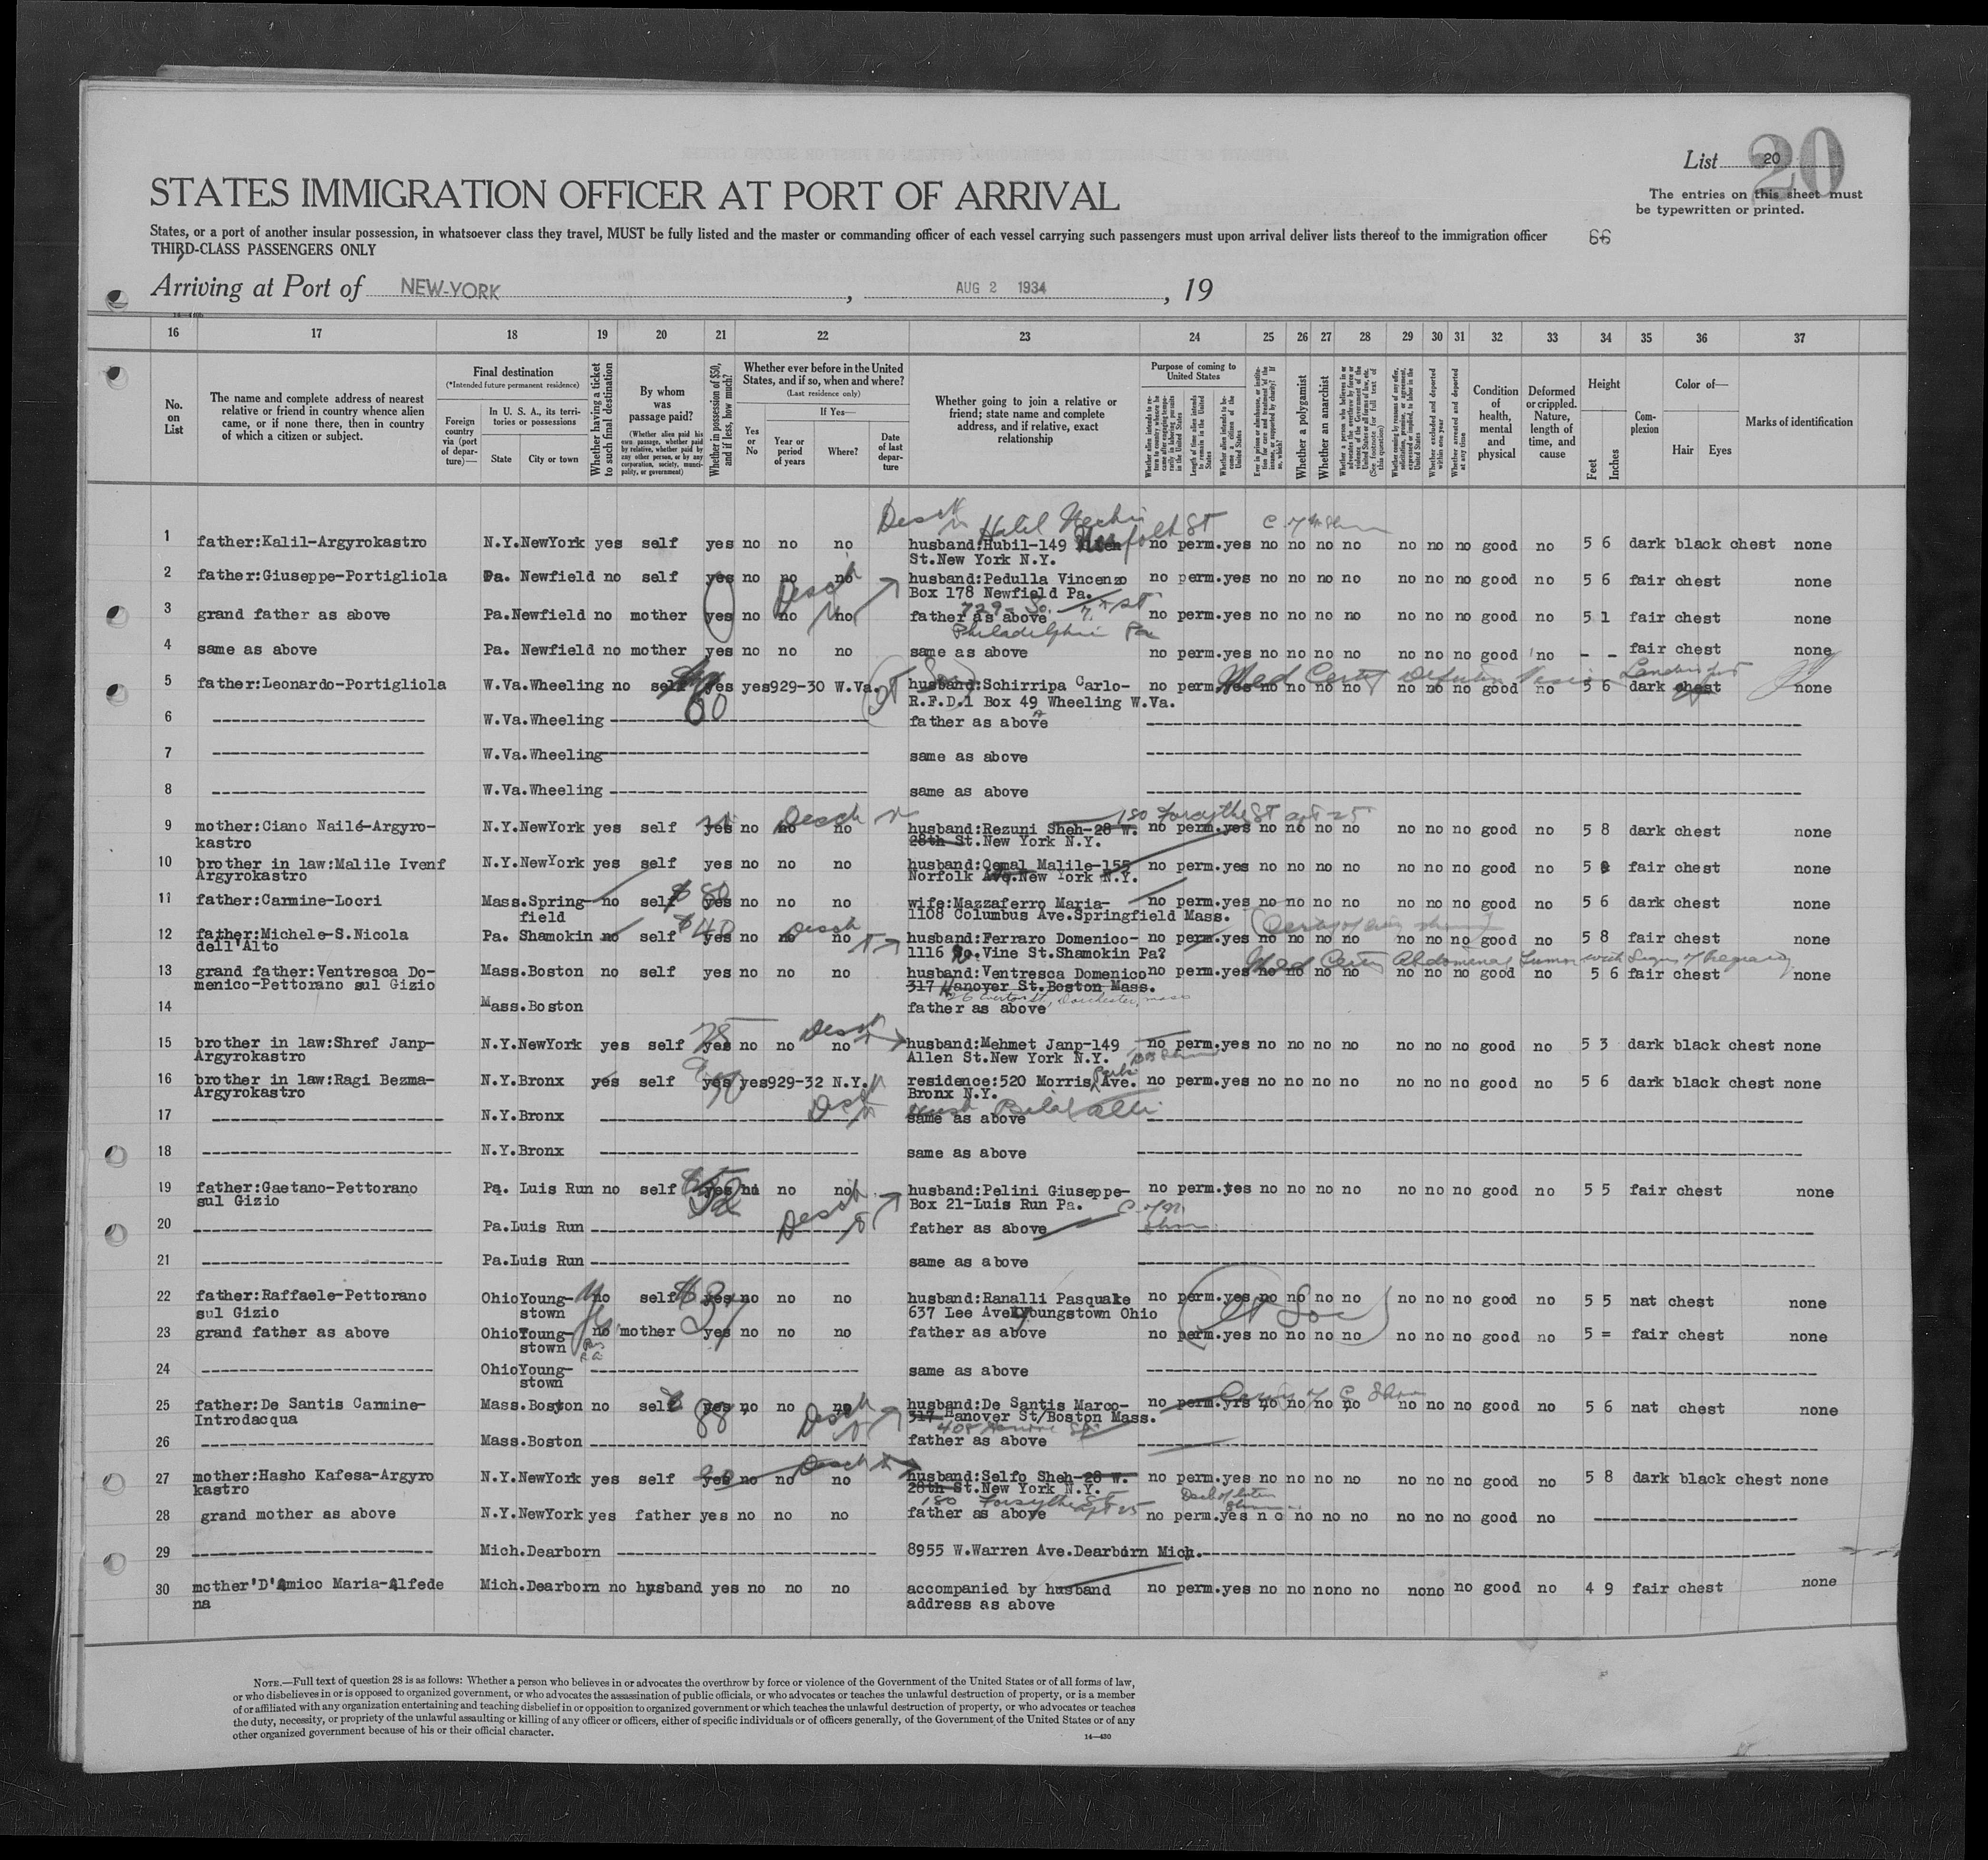 List 20
20
The entries on this sheet must
be typewritten or printed.
STATES IMMIGRATION OFFICER AT PORT OF ARRIVAL
States, or a port of another insular possession, in whatsoever class they travel, MUST be fully listed and the master or commanding officer of each vessel carrying such passengers must upon arrival deliver lists thereof to the immigration officer
66
THIRD-CLASS PASSENGERS ONLY
Arriving at Port of NEW-YORK, AUG 2 1934, 19
16 17 18 19 20 21 22 23 24 25 26 27 28 29 30 31 32 33 34 35 36 37
No. on List
The name and complete address of nearest relative or friend in country whence alien came, or if none there, then in country of which a citizen or subject.
Final destination
(*Intended future permanent residence)
Foreign country via (port of departure)—
In U. S. A., its territories or possessions
State
City or town
Whether having a ticket to such final destination
By whom was passage paid?
(Whether alien paid his own passage, whether paid by relative, whether paid by any other person, or by any corporation, society, municipality, or government)
Whether in possession of $50, and if less, how much?
Whether ever before in the United States, and if so, when and where?
(Last residence only)
Yes or No
If Yes—
Year or period of years
Where?
Date of last departure
Whether going to join a relative or friend; state name and complete address, and if relative, exact relationship
Purpose of coming to United States
Length of time alien intends to remain in the United States
Whether alien intends to become a citizen of the United States
Whether a polygamist
Whether an anarchist
Whether excluded and deported within one year
Whether arrested and deported at any time
Condition of health, mental and physical
Deformed or crippled. Nature, length of time, and cause
Height
Feet
Inches
Complexion
Color of—
Hair
Eyes
Marks of identification
1 father:Kalil-Argyrokastro N.Y.NewYork yes self yes no no no husband:Hubil-149 no perm.yes no no no no no no no good no 5 6 dark black chest none
St.New York N.Y.
2 father:Giuseppe-Portigliola Pa. Newfield no self yes no no no husband:Pedulla Vincenzo no perm.yes no no no no no no no good no 5 6 fair chest none
Box 178 Newfield Pa.
3 grand father as above Pa.Newfield no mother yes no no no father as above no perm.yes no no no no no no no good no 5 1 fair chest none
729 So. 7th St
Philadelphia Pa
4 same as above Pa. Newfield no mother yes no no no same as above no perm.yes no no no no no no no good no - - fair chest none
5 father:Leonardo-Portigliola W.Va.Wheeling no self yes yes929-30 W.Va. husband:Schirripa Carlo- no perm.yes no no no no no no no good no 5 6 dark chest none
60
R.F.D.1 Box 49 Wheeling W.Va.
6 W.Va.Wheeling father as above
7 W.Va.Wheeling same as above
8 W.Va.Wheeling same as above
180 Forsythe St apt 25
9 mother:Ciano Nailé-Argyro- N.Y.NewYork yes self yes no no no husband:Rezuni Sheh-28 W. no perm.yes no no no no no no no good no 5 8 dark chest none
kastro 28th St.New York N.Y.
10 brother in law:Malile Ivenf N.Y.NewYork yes self yes no no no husband:Qemal Malile-155 no perm.yes no no no no no no no good no 5 fair chest none
Argyrokastro Norfolk Ave.New York N.Y.
11 father:Carmine-Locri Mass.Spring- no self $80 yes no no no wife:Mazzaferro Maria- no perm.yes no no no no no no no good no 5 6 dark chest none
field 1108 Columbus Ave.Springfield Mass.
12 father:Michele-S.Nicola Pa. Shamokin no self $40 yes no no no husband:Ferraro Domenico- no perm.yes no no no no no no no good no 5 8 fair chest none
dell'Alto 1116 So.Vine St.Shamokin Pa?
Med Cert Abdominal Tumor with Signs of Pregnancy
13 grand father:Ventresca Do- Mass.Boston no self yes no no no husband:Ventresca Domenico no perm.yes no no no no no no no good no 5 6 fair chest none
menico-Pettorano sul Gizio 317 Hanover St.Boston Mass.
14 Mass.Boston father as above
15 brother in law:Shref Janp- N.Y.NewYork yes self yes no no no husband:Mehmet Janp-149 no perm.yes no no no no no no no good no 5 3 dark black chest none
Argyrokastro Allen St.New York N.Y.
16 brother in law:Ragi Bezma- N.Y.Bronx yes self yes yes929-32 N.Y. residence:520 Morris Park Ave. no perm.yes no no no no no no no good no 5 6 dark black chest none
Argyrokastro Bronx N.Y.
17 N.Y.Bronx same as above
18 N.Y.Bronx same as above
19 father:Gaetano-Pettorano Pa. Luis Run no self yes no no husband:Pelini Giuseppe- no perm.yes no no no no no no no good no 5 5 fair chest none
sul Gizio Box 21-Luis Run Pa.
20 Pa.Luis Run father as above
21 Pa.Luis Run same as above
22 father:Raffaele-Pettorano OhioYoung- no self yes no no no husband:Ranalli Pasquale no perm.yes no no no no no no no good no 5 5 nat chest none
sul Gizio stown 637 Lee Ave Youngstown Ohio
23 grand father as above OhioYoung- no mother yes no no no father as above no perm.yes no no no no no no no good no 5 = fair chest none
stown
24 OhioYoung- same as above
stown
25 father:De Santis Carmine- Mass.Boston no self 88 yes no no no husband:De Santis Marco- no perm.yrs no no no no no no no good no 5 6 nat chest none
Introdacqua 317 Hanover St/Boston Mass.
26 Mass.Boston father as above
27 mother:Hasho Kafesa-Argyro N.Y.NewYork yes self yes no no no husband:Selfo Sheh-28 W. no perm.yes no no no no no no no good no 5 8 dark black chest none
kastro 28th St.New York N.Y.
180 Forsythe St apt 25
28 grand mother as above N.Y.NewYork yes father yes no no no father as above no perm.yes no no no no no no no good no
29 Mich.Dearborn 8955 W.Warren Ave.Dearborn Mich.
30 mother'D'Amico Maria-Alfede Mich.Dearborn no husband yes no no no accompanied by husband no perm.yes no no nono no nono no good no 4 9 fair chest none
na address as above
NOTE.—Full text of question 28 is as follows: Whether a person who believes in or advocates the overthrow by force or violence of the Government of the United States or of all forms of law,
or who disbelieves in or is opposed to organized government, or who advocates the assassination of public officials, or who advocates or teaches the unlawful destruction of property, or is a member
of or affiliated with any organization entertaining and teaching disbelief in or opposition to organized government or which teaches the unlawful destruction of property, or who advocates or teaches
the duty, necessity, or propriety of the unlawful assaulting or killing of any officer or officers, either of specific individuals or of officers generally, of the Government of the United States or of any
other organized government because of his or their official character.
14—430